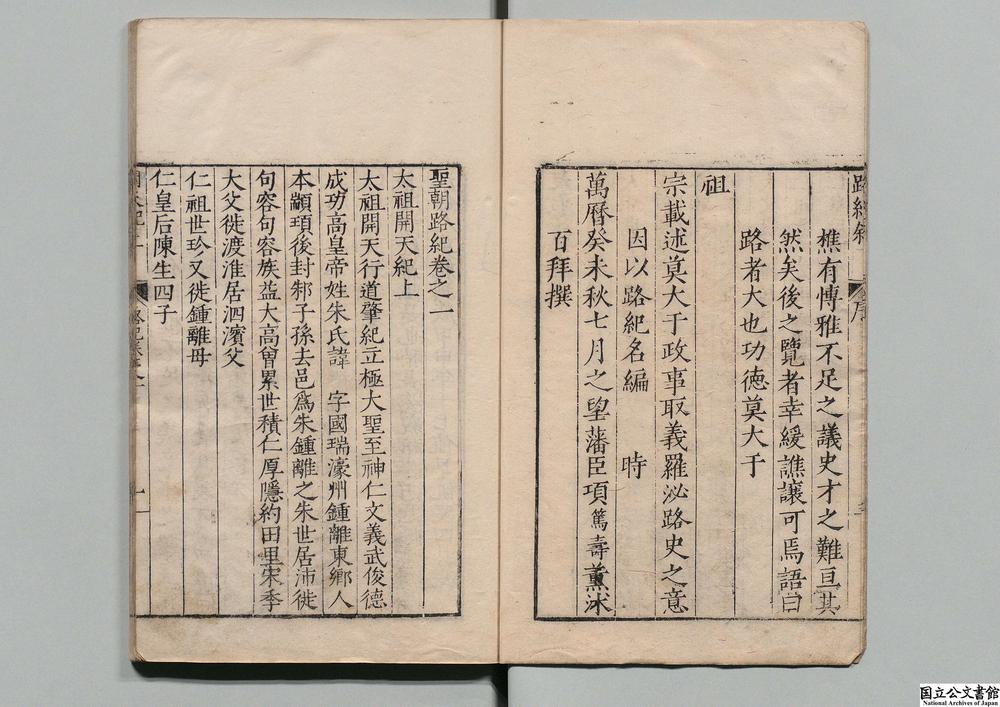 樵有愽雅不足之議史才之難亘其
然矣後之覽者幸緩譙讓可焉語曰
路者大也功德莫大于
祖
宗載述莫大于政事取義羅泌路史之意
因以路紀名編　時
萬曆癸未秋七月之望藩臣項篤壽薰沐
百拜撰
聖朝路紀卷之一
太祖開天紀上
太祖開天行道肇紀立極大聖至神仁文義武俊德
成功高皇帝姓朱氏諱　字國瑞濠州鍾離東鄉人
本顓頊後封邾子孫去邑爲朱鍾離之朱世居沛徙
句容句容族益大高曾累世積仁厚隱約田里宋季
大父徙渡淮居泗濱父
仁祖世珍又徙鍾離母
仁皇后陳生四子
国立公文書館
National Archives of Japan